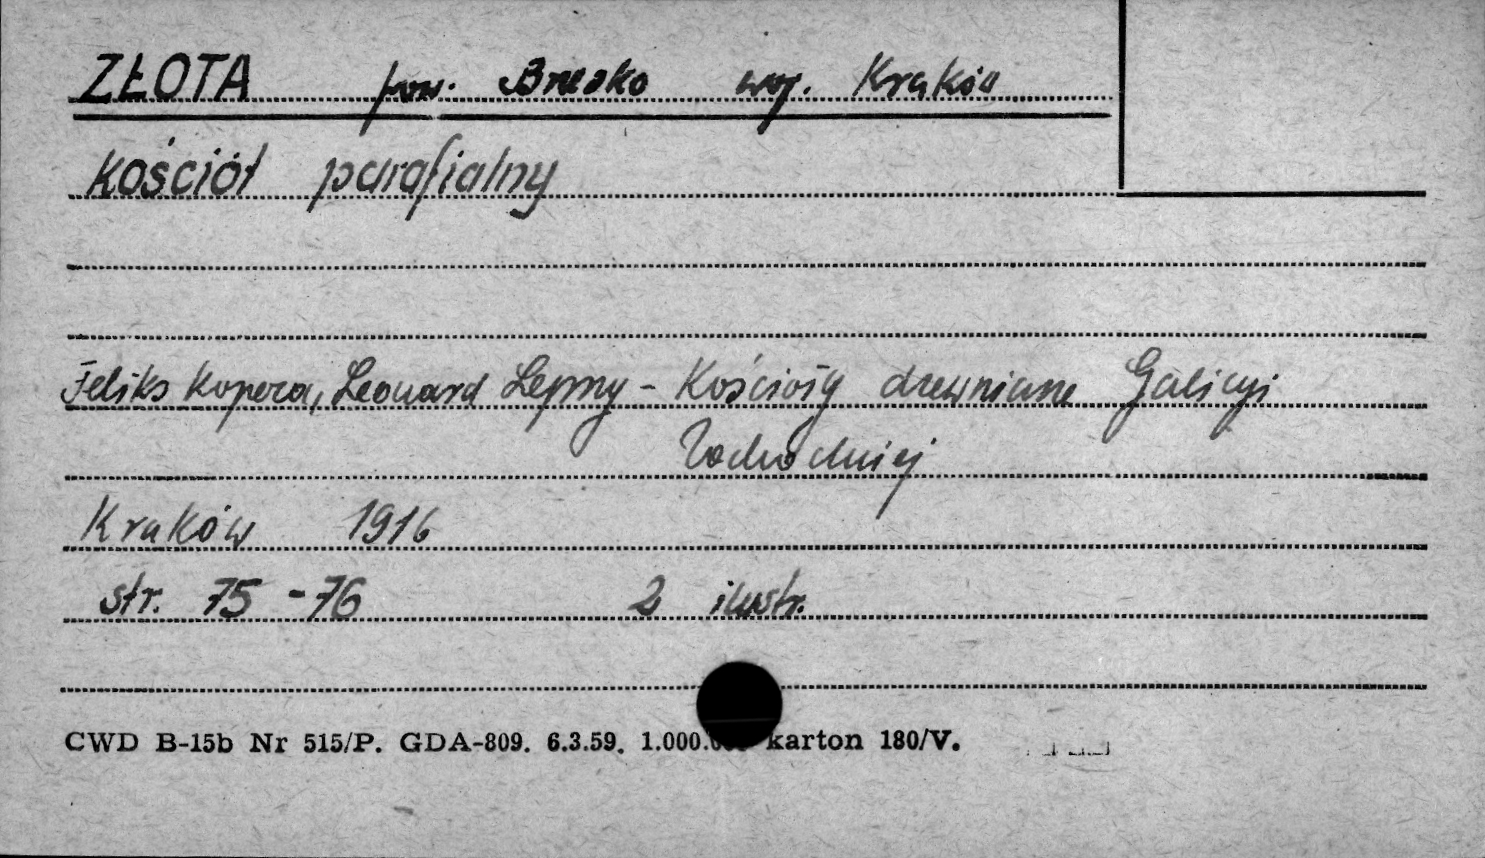 ZŁOTA pow. Brzesko woj. Kraków
Kościół parafialny
Feliks Kopera, Leonard Lepszy - Kościoły drewniane Galicyi
Zachodniej
Kraków 1916
str. 75-76 2 ilustr.
CWD B-15b Nr 515/P. GDA-809. 6.3.59. 1.000. karton 180/V.